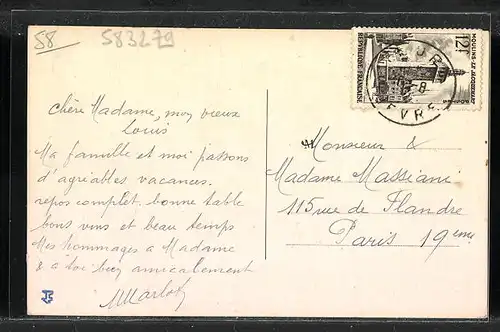 58
583279
Chère Madame, mon vieux
Louis
Ma famille et moi passons
d'agréables vacances.
repos complet, bonne table
bons vins et beau temps
Mes hommages à Madame
& à toi bien amicalement
Monsieur &
Madame Massiani
115 rue de Flandre
Paris 19ème
12F
MOULINS-LE JACQUEMART
POSTES
REPUBLIQUE FRANÇAISE